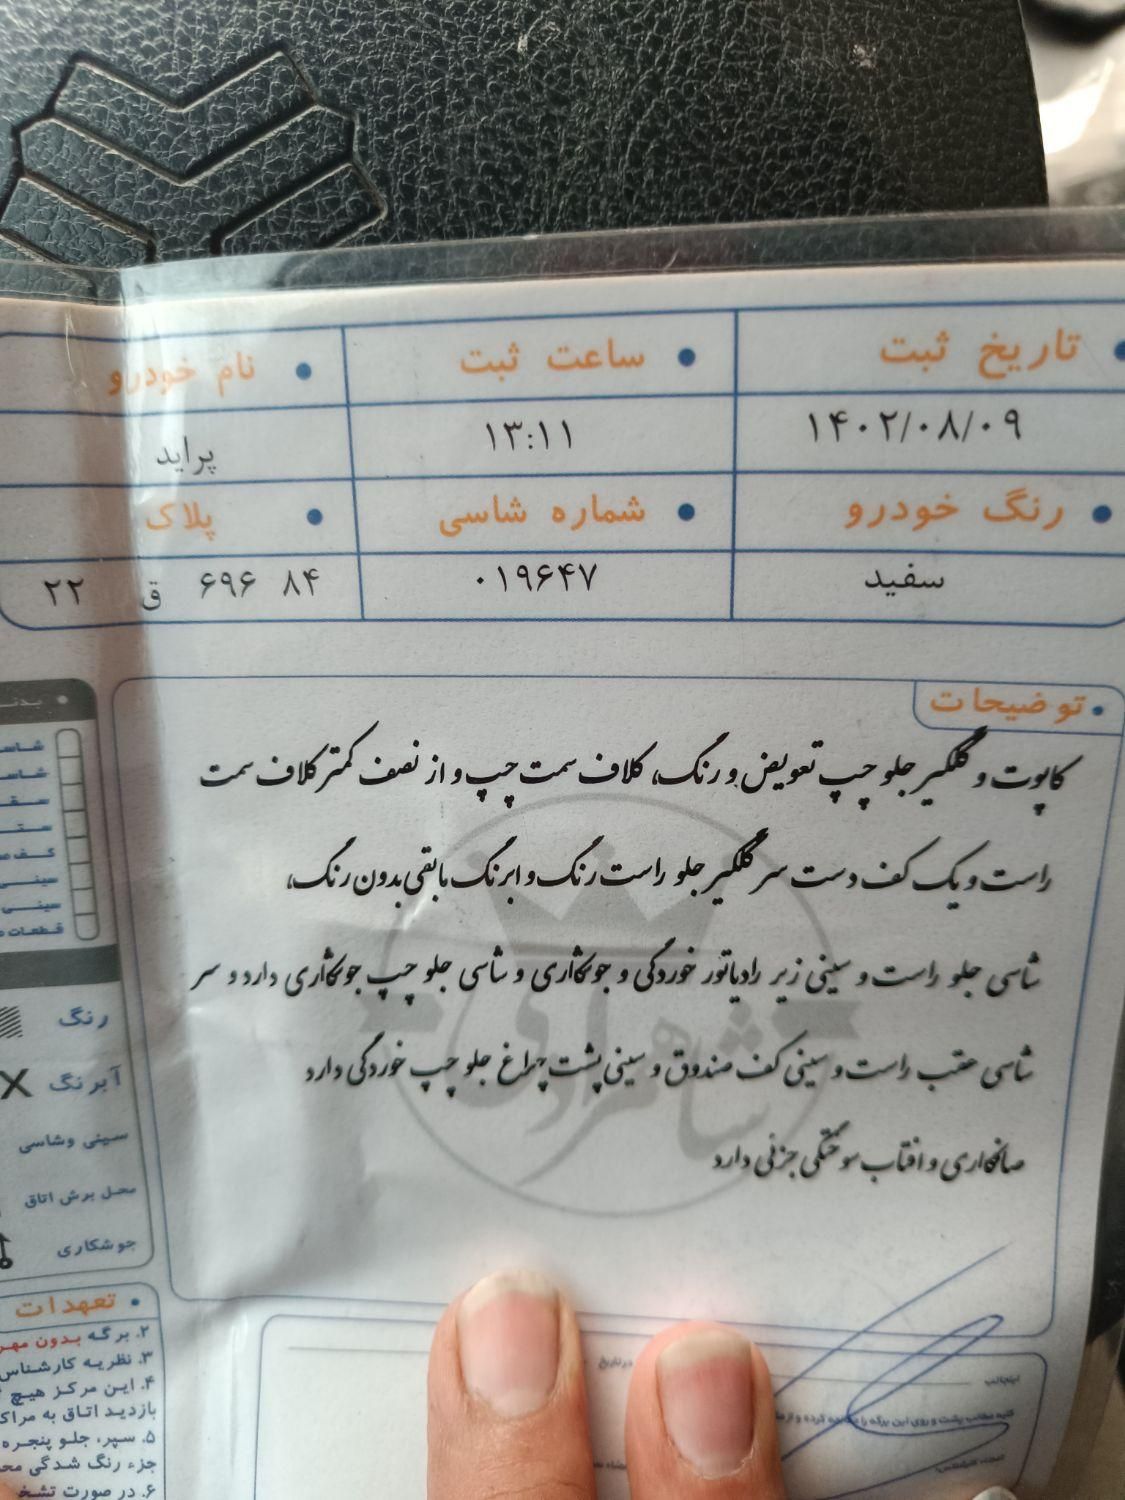 تاریخ ثبت • ساعت ثبت • نام خودرو
۱۴۰۲/۰۸/۰۹ ۱۳:۱۱ پراید
رنگ خودرو • شماره شاسی • پلاک
سفید ۰۱۹۶۴۷ ۸۴ ۶۹۶ ق ۲۲
توضیحات
کاپوت و گلگیر جلو چپ تعویض و رنگ، کلاف سمت چپ و از نصف کمتر کلاف سمت
راست و یک کف دست سر گلگیر جلو راست رنگ و ابرنگ مابقی بدون رنگ،
شاسی جلو راست و سینی زیر رادیاتور خوردگی و جوشکاری و شاسی جلو چپ جوشکاری دارد و سر
شاسی عقب راست و سینی کف صندوق و سینی پشت چراغ جلو چپ خوردگی دارد
صافکاری و افتاب سوختگی جزئی دارد
رنگ
آبرنگ
سینی وشاسی
محل برش اتاق
جوشکاری
تعهدات
۲. برگه بدون مهر
۳. نظریه کارشناس
۴. این مرکز هیچ
بازدید اتاق به مراک
۵. سپر، جلو پنجره
جزء رنگ شدگی
۶. در صورت
اینجانب
در تاریخ